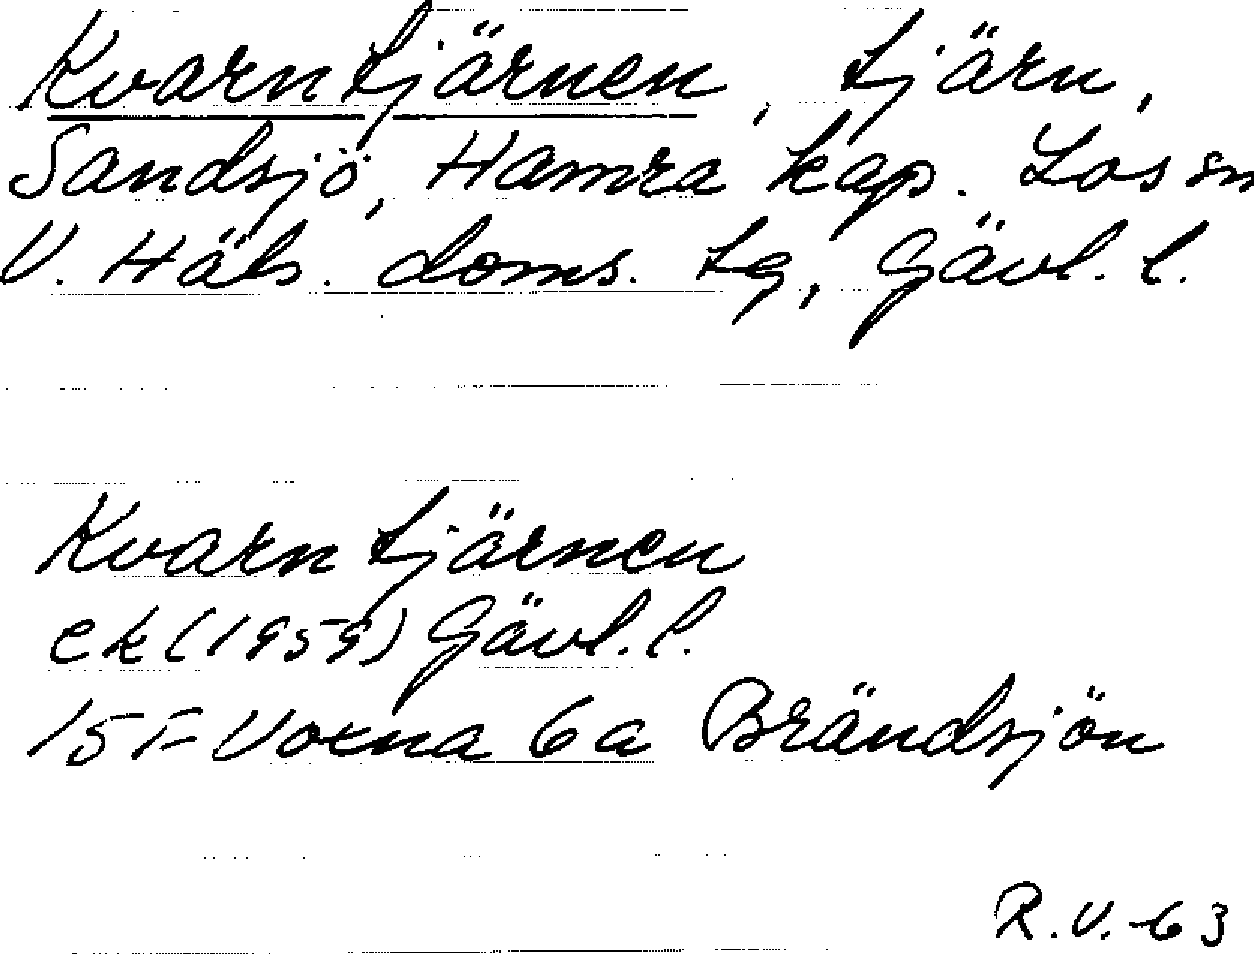 Kvarntjärnen, tjärn,
Sandsjö, Hamra kap. Los sn
V. Häls. doms. tg, Gävl. l.
Kvarntjärnen
ek (1959) Gävl. l.
15 F Voxna 6a Brändsjön
R.V. -63